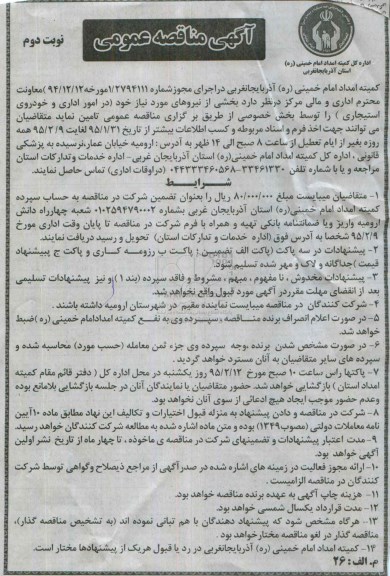 آگهی مناقصه عمومی
نوبت دوم
اداره کل کمیته امداد امام خمینی (ره)
استان آذربایجانغربی
کمیته امداد امام خمینی (ره) آذربایجانغربی دراجرای مجوزشماره ۱/۲۷۹۴۱۱۱مورخه۹۴/۱۲/۱۲ )معاونت
اداری و مالی مرکز درنظر دارد بخشی از نیروهای مورد نیاز خود (در امور اداری و خودروی
استیجاری ) را توسط بخش خصوصی از طریق بر گزاری مناقصه عمومی تامین نماید متقاضیان
می توانند جهت اخذ فرم و اسناد مربوطه و کسب اطلاعات بیشتر از تاریخ ۹۵/۱/۳۱ لغایت ۹۵/۲/۹ همه
روزه بغیر از ایام تعطیل از ساعت ۸ صبح الی ۱۴ ظهر به آدرس : ارومیه خیابان عمار،نرسیده به پزشکی
قانونی ، اداره کل کمیته امداد امام خمینی(ره) استان آذربایجان غربی- اداره خدمات و تدارکات استان
مراجعه و یا با شماره تلفن ۳۳۴۶۱۳۳۰-۰۴۴۳۳۴۶۰۵۶۸ (دراوقات اداری) تماس حاصل نمایند.
شرایط
۱- متقاضیان میبایست مبلغ ۸۰/۰۰۰/۰۰۰ ریال را بعنوان تضمین شرکت در مناقصه به حساب سپرده
کمیته امدادامام خمینی(ره) استان آذربایجان غربی بشماره ۰۱۰۲۵۹۴۷۹۰۰۰۲ شعبه چهارراه دانش
ارومیه واریز ویا ضمانتنامه بانکی تهیه و همراه با فرم شرکت در مناقصه تا پایان وقت اداری مورخ
۹۵/۲/۹ شخصا به آدرس فوق (اداره خدمات و تدارکات استان) تحویل و رسید دریافت نمایند.
۲- پیشنهادات در سه پاکت (پاکت الف تضمین : پاکت ب رزومه کاری و پاکت ج پیشنهاد
قیمت )جداگانه و لاک و مهر شده تسلیم شود.
۳- پیشنهادات مخدوش ، نا مفهوم ، مبهم ، مشروط و فاقد سپرده (بند ۱ )و نیز پیشنهادات تسلیمی
بعد از انقضای مهلت مقرردر آگهی مورد قبول واقع نخواهد شد.
۴- شرکت کنندگان در مناقصه میبایست نماینده مقیم در شهرستان ارومیه داشته باشند .
۵- در صورت اعلام انصراف برنده مناقصه ،سپرده وی به نفع کمیته امدادامام خمینی (ره )ضبط
خواهد شد.
۶- در صورت مشخص شدن برنده ،وجه سپرده وی جزء ثمن معامله (حسب مورد) محاسبه شده و
سپرده های سایر متقاضیان به آنان مسترد خواهد گردید .
۷- پاکتها راس ساعت ۱۰ صبح مورخ ۹۵/۲/۱۲ روز یکشنبه در محل اداره کل ( دفتر قائم مقام کمیته
امداد استان ) بازگشایی خواهد شد. حضور متقاضیان یا نمایندگان آنان در جلسه بازگشایی بلامانع بوده
وعدم حضور موجب ایجاد هیچ ادعائی از سوی آنان نخواهد بود.
۸- شرکت در مناقصه و دادن پیشنهاد به منزله قبول اختیارات و تکالیف این نهاد مطابق ماده ۱۰آیین
نامه معاملات دولتی (مصوب۱۳۴۹) بوده و متن ماده اشاره شده به مطالعه شرکت کنندگان خواهد رسید.
۹- مدت اعتبار پیشنهادات و تضمینهای شرکت در مناقصه ی ماخوذه ، تا چهار ماه از تاریخ نشر اولین
آگهی خواهد بود.
۱۰- ارائه مجوز فعالیت در زمینه های اشاره شده در صدرآگهی از مراجع ذیصلاح وگواهی توسط شرکت
کنندگان در مناقصه الزامیست .
۱۱- هزینه چاپ آگهی به عهده برنده مناقصه خواهد بود.
۱۲- مدت قرارداد یکسال شمسی خواهد بود.
۱۳- هرگاه مشخص شود که پیشنهاد دهندگان با هم تبانی نموده اند (به تشخیص مناقصه گذار)،
مناقصه گذار در لغو مناقصه مختارخواهد بود .
۱۴- کمیته امداد امام خمینی (ره) آذربایجانغربی در رد یا قبول هریک از پیشنهادها مختار است.
م . الف : ۲۶